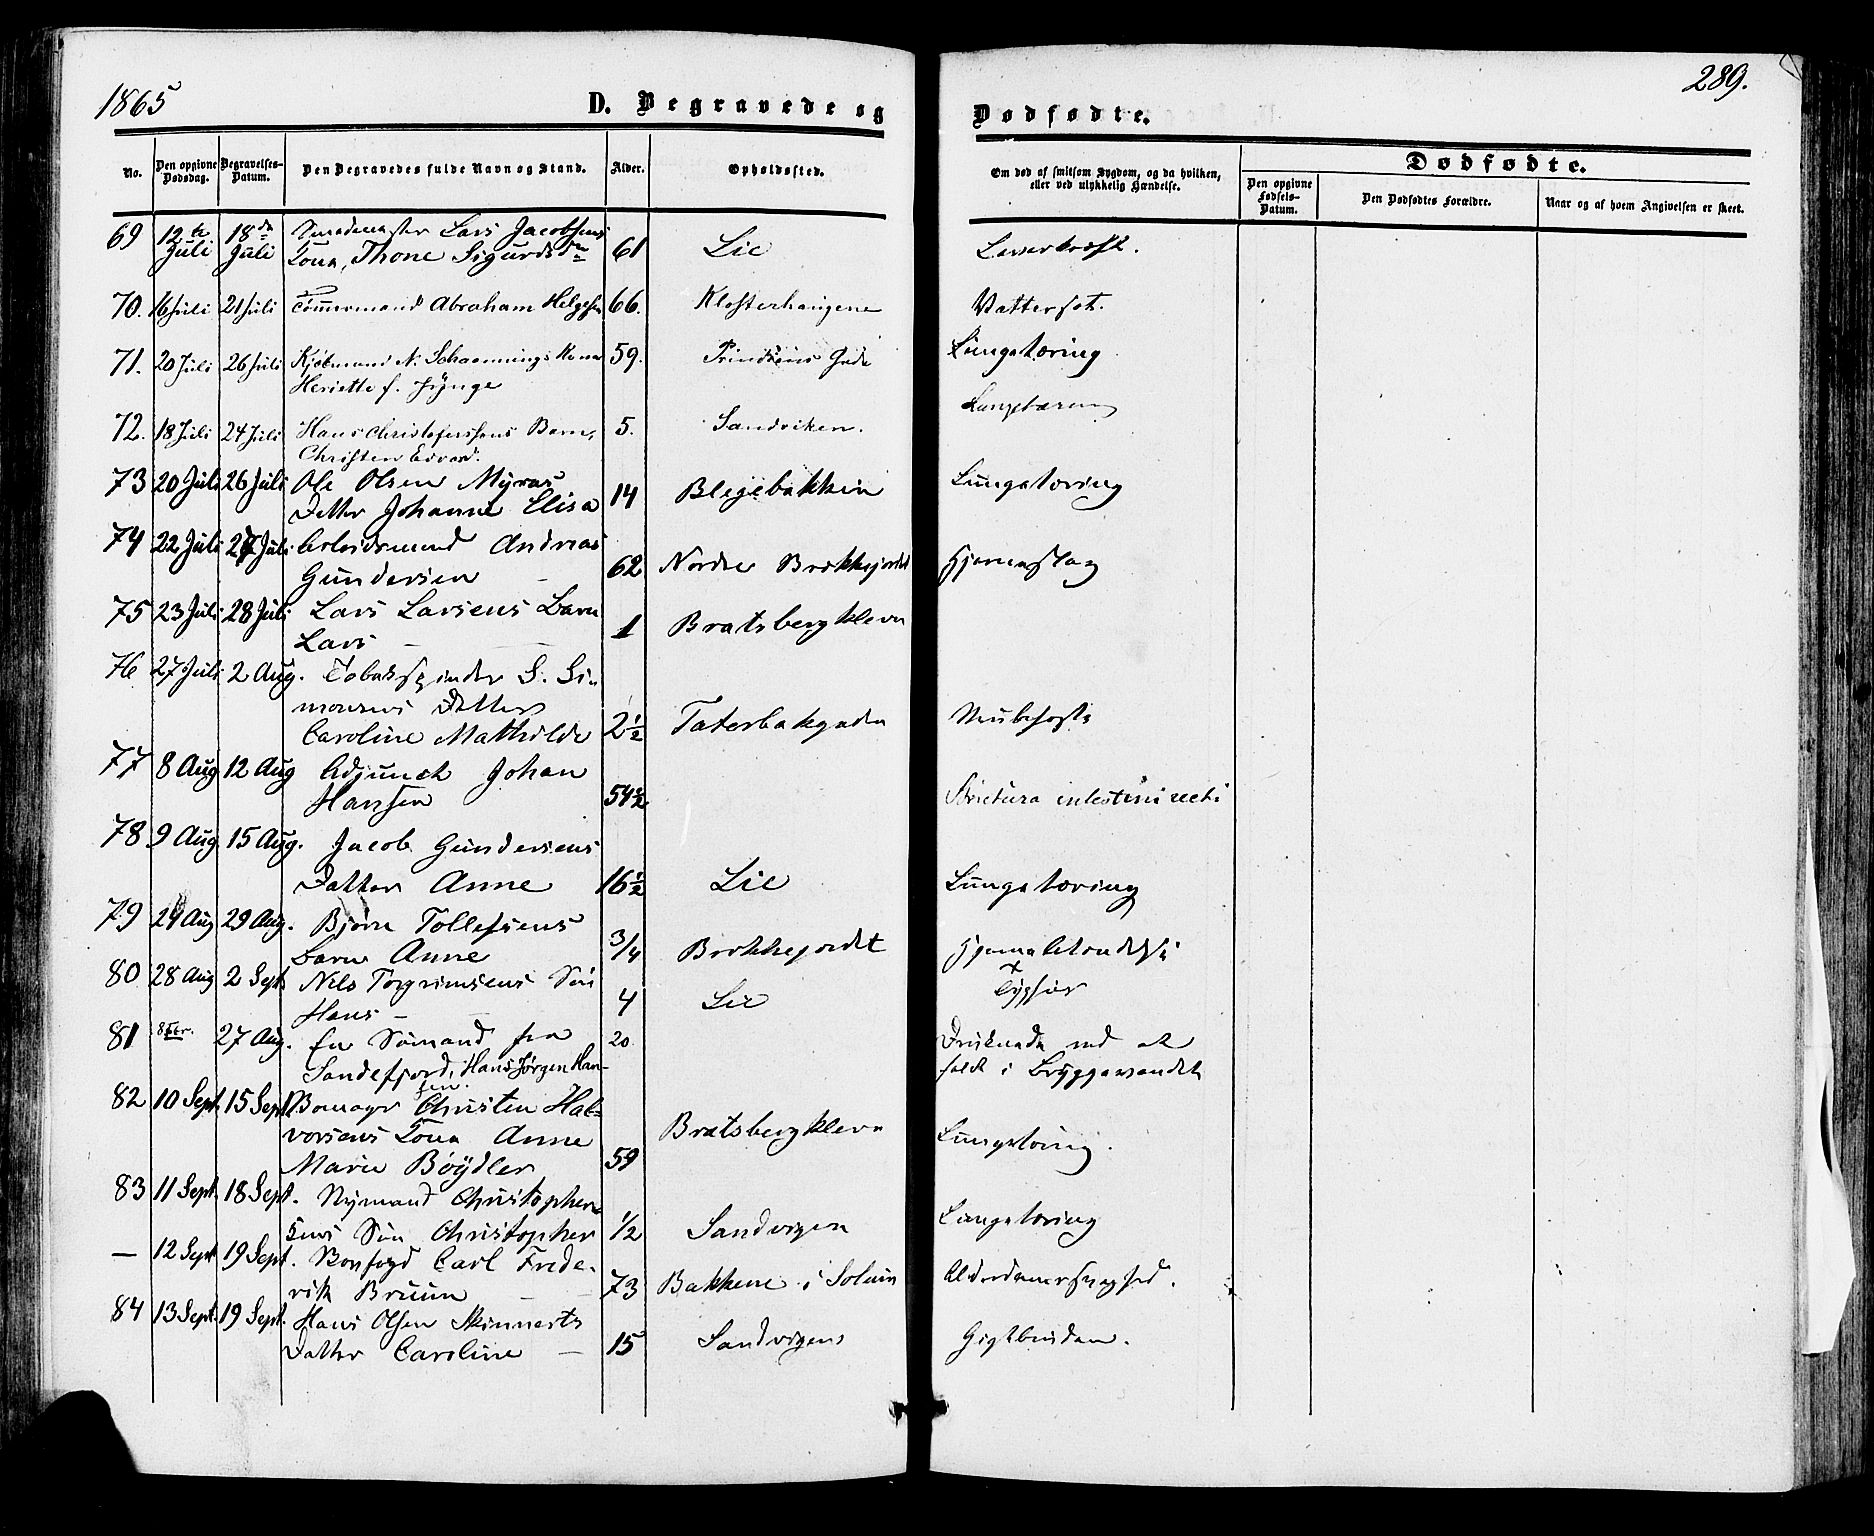 1865
289.
D. Begravede og
Dødfødte.
No.
Den opgivne Dødsdag.
Begravelses-Datum.
Den Begravedes fulde Navn og Stand.
Alder.
Opholdssted.
Om død af smitsom Sygdom, og da hvilken, eller ved ulykkelig Hændelse.
Dødfødte.
Den opgivne Fødsels-Datum.
Den Dødfødtes Forældre.
Naar og af hvem Angivelsen er skeet.
69 12te Juli 18de Juli Smedemester Lars Jacobsens
Kona, Thone Sigurdsdr 61 Lie Leverkræft.
70. 16 Juli 21 Juli Tømmermand Abraham Helgesen 66. Klosterhaugene Vattersot.
71. 20 Juli 26 Juli Kjøbmand N. Schaannings Kone 59. Prindsens Gade Lungetæring
Heriette f. Jynge
72. 18 Juli 24 Juli Hans Christofersens Barn, 5. Sandviken. Lungetæring
Christen Edvard.
73 20 Juli 26 Juli Ole Olsen Myras
Datter Johanne Elisa 14 Blegebakken Lungetæring
74 22 Juli 27 Juli Arbeidsmand Andreas
Gundersen 62 Nordre Brekkejordet Hjerneslag
75 23 Juli 28 Juli Lars Larsens Barn
Lars 1 Bratsbergkleva
76 27 Juli 2 Aug. Tobakspinder S. Si-
monsens Datter
Caroline Mathilde 2½ Taterbakgaden Strubehoste
77 8 Aug 12 Aug Adjunct Johan
Hansen 54½ Strictura intestini recti
78 9 Aug 15 Aug. Jacob Gundersens
Datter Anne 16½ Lie Lungetæring
79 24 Aug 29 Aug. Bjørn Tollefsens
Barn Anne 3/4 Brekkejordet Hjernebetændelse
80 28 Aug 2 Sept Nils Torgrimsens Søn
Hans 4 Lie Typhus
81 27 Aug. En Sømand fra 20 Druknede ved at
Sandefjord, Hans Jørgen Han-
sen. faldt i Bryggevandet
82 10 Sept 15 Sept Christen Hal-
vorsens Kona Anne
Marie Bøydler 59 Bratsbergkleva Lungetæring.
83 11 Sept 18 Sept. Nymand Christopher-
sens Søn Christopher 1/2 Sandvigen Lungetæring
— 12 Sept 19 Sept. Carl Frede-
rik Bruun 73 Bakkene i Solum Alderdomssvaghed.
84 13 Sept. 19 Sept. Hans Olsen Skinnerts
Datter Caroline 15 Sandvigens Gigtfeber.